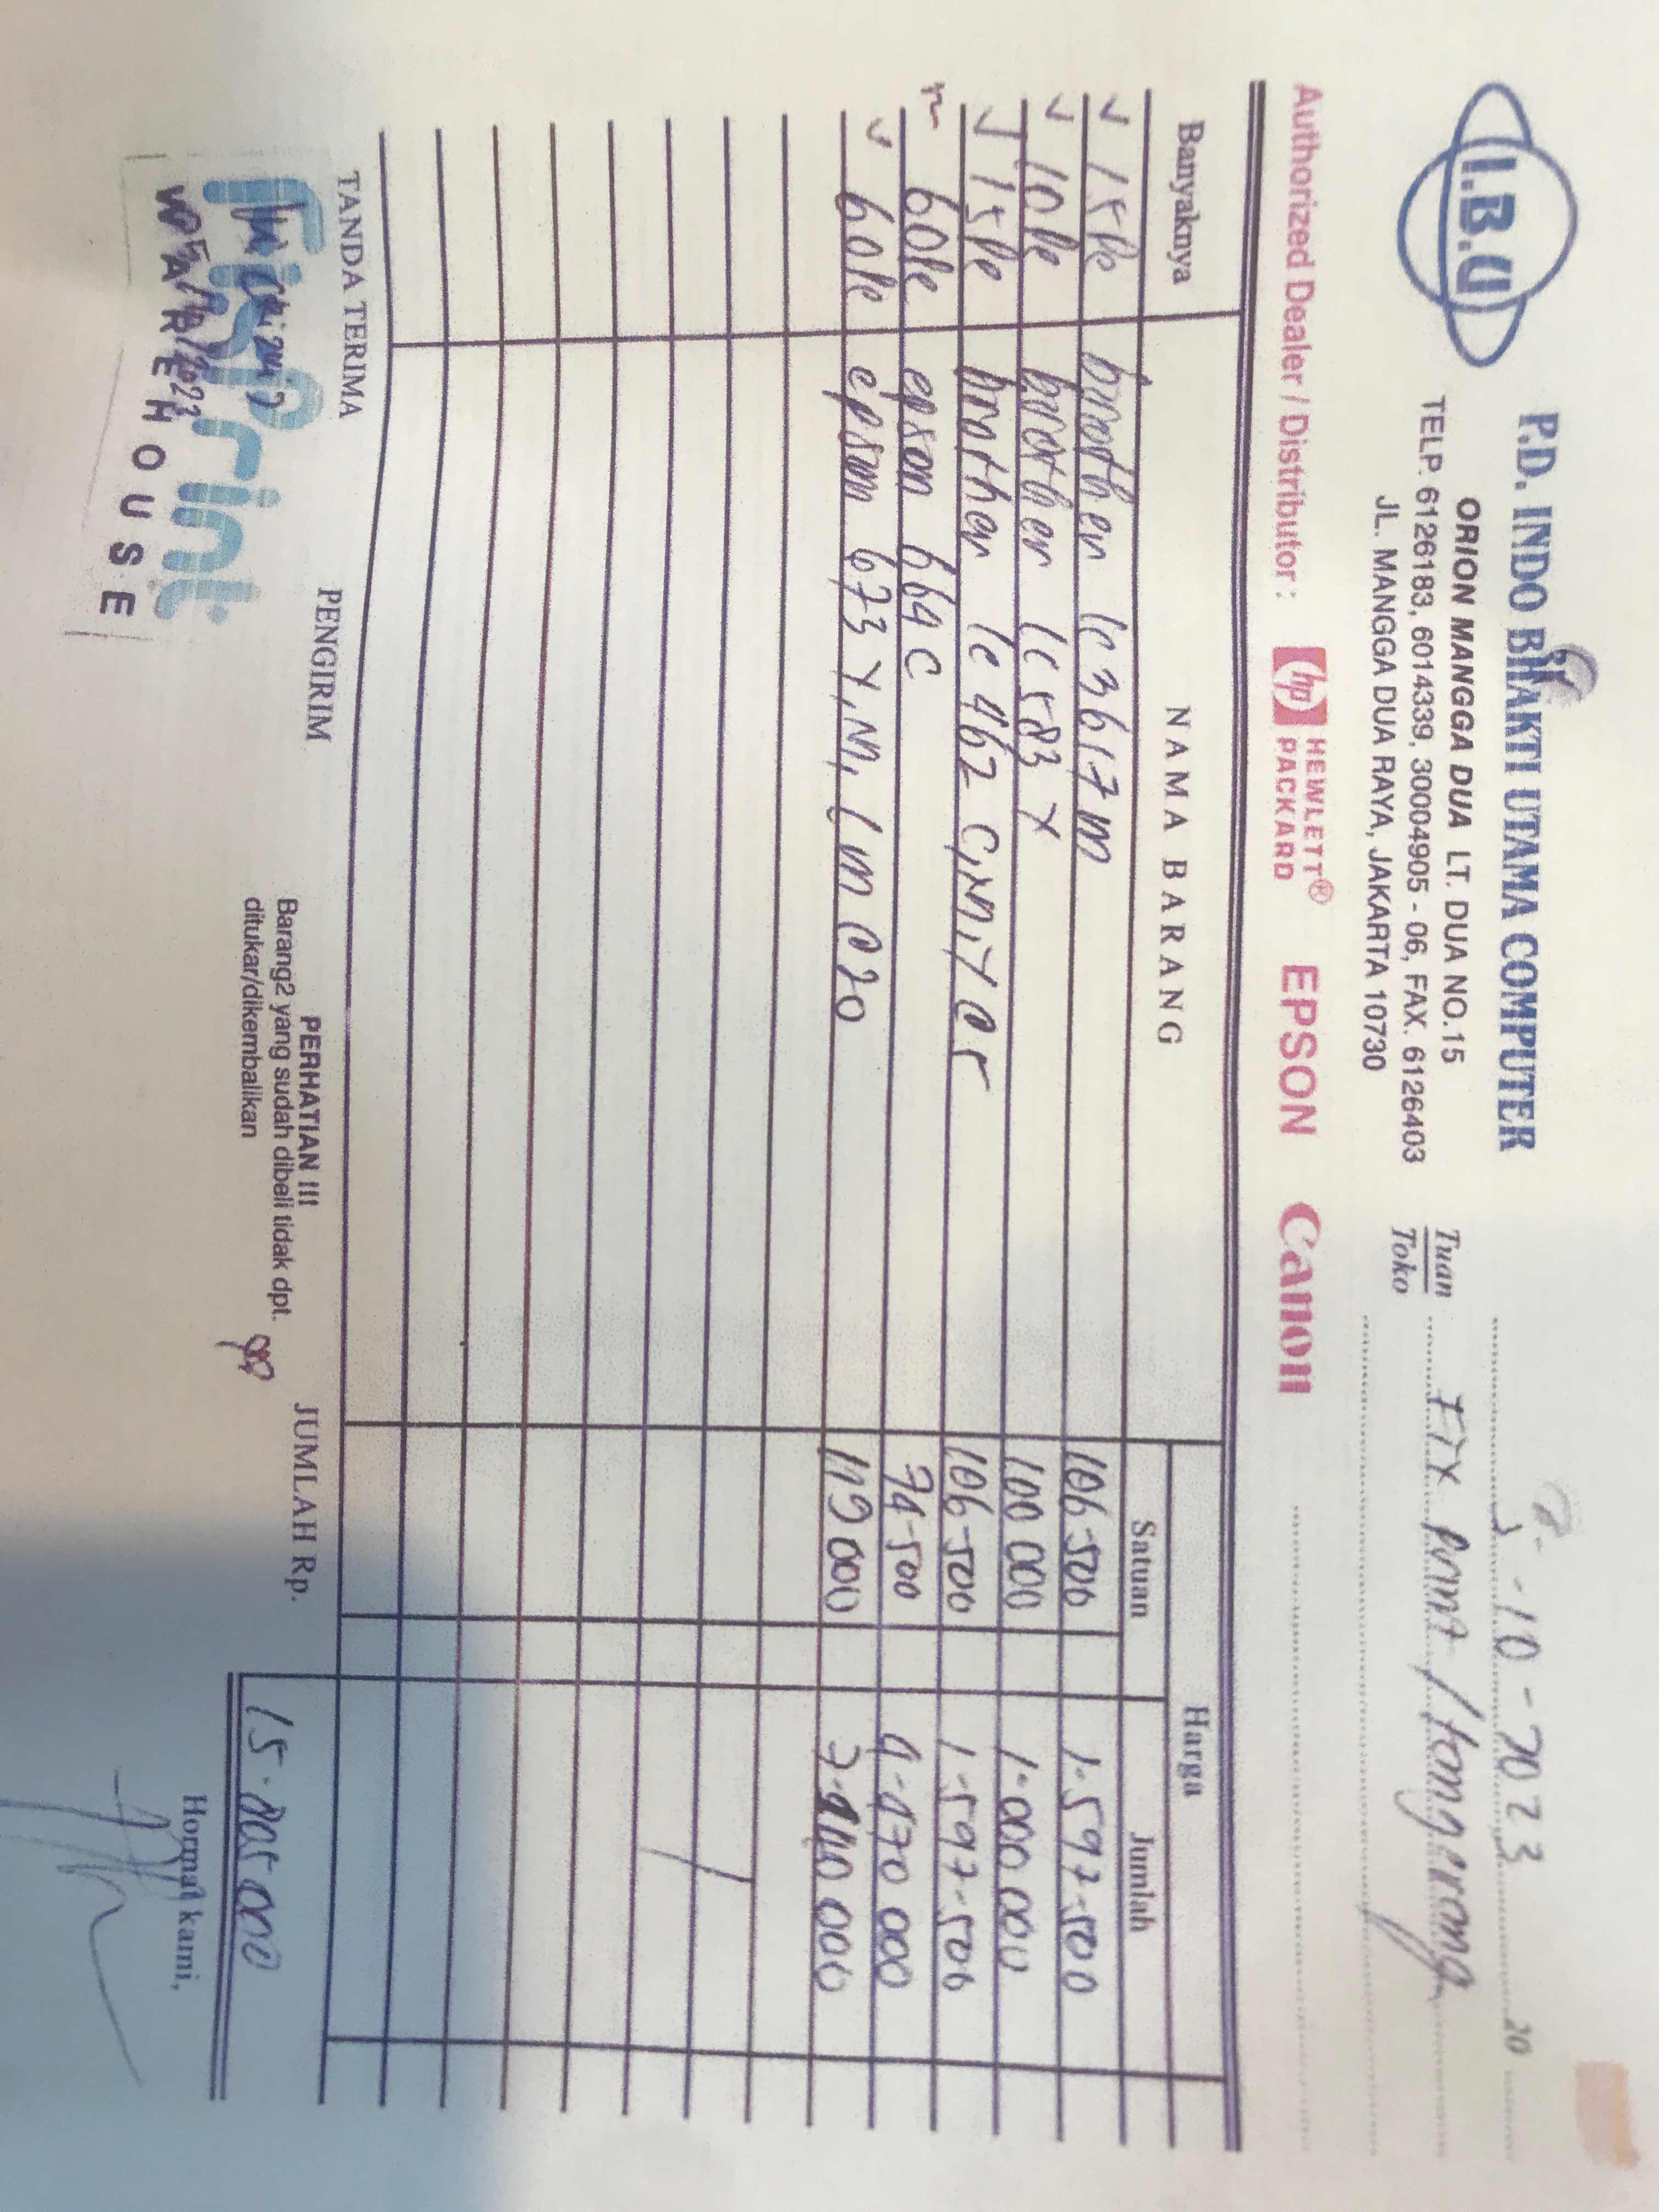 I.B.U
P.D. INDO BHAKTI UTAMA COMPUTER
ORION MANGGA DUA LT. DUA NO.15
TELP. 6126183, 6014339, 30004905 - 06, FAX. 6126403
JL. MANGGA DUA RAYA, JAKARTA 10730
3-10-2023 20
Tuan
Toko
FIX print / tangerang
Authorized Dealer / Distributor : hp HEWLETT® PACKARD EPSON Canon
Banyaknya NAMA BARANG Harga
Satuan Jumlah
15 pc brother lc 3617 m 106-500 1-597-500
10 pc brother lc 583 Y 100 000 1-000 000
15 pc brother lc 462 C,M,Y @5 106-500 1-597-500
60 pc epson 664 C 74-500 4-470 000
60 pc epson 673 Y,M,LM @20 119 000 7-140 000
TANDA TERIMA
PENGIRIM
PERHATIAN !!!
Barang2 yang sudah dibeli tidak dpt.
ditukar/dikembalikan
JUMLAH Rp. 15-805 000
Hormat kami,
FixPrint
WAREHOUSE